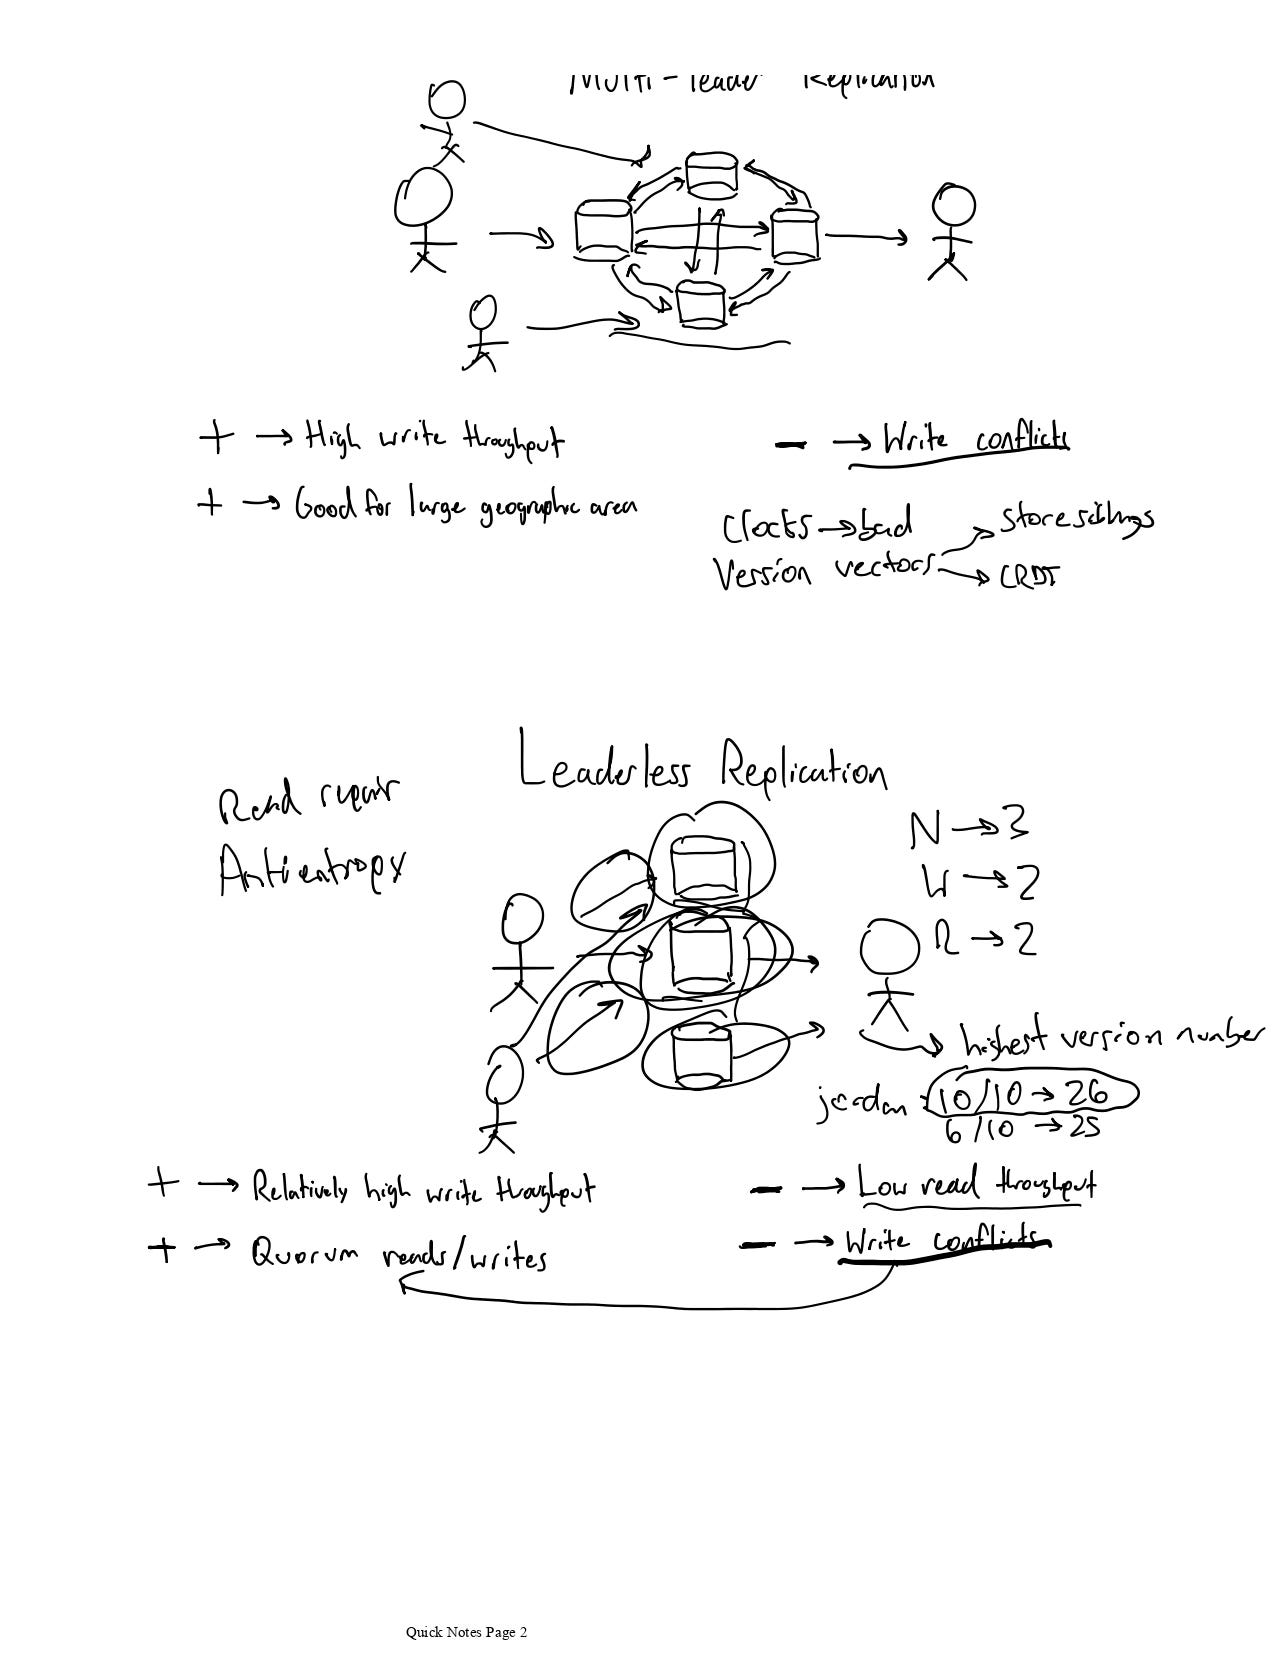 Multi-leader Replication
+ → High write throughput
- → Write conflicts
+ → Good for large geographic area
Clocks → bad
Version vectors → Store siblings
→ CRDT
Leaderless Replication
Read repair
Anti entropy
N → 3
W → 2
R → 2
→ highest version number
jordan: 10/10 → 26
6/10 → 25
+ → Relatively high write throughput
- → Low read throughput
+ → Quorum reads/writes
- → Write conflicts
Quick Notes Page 2